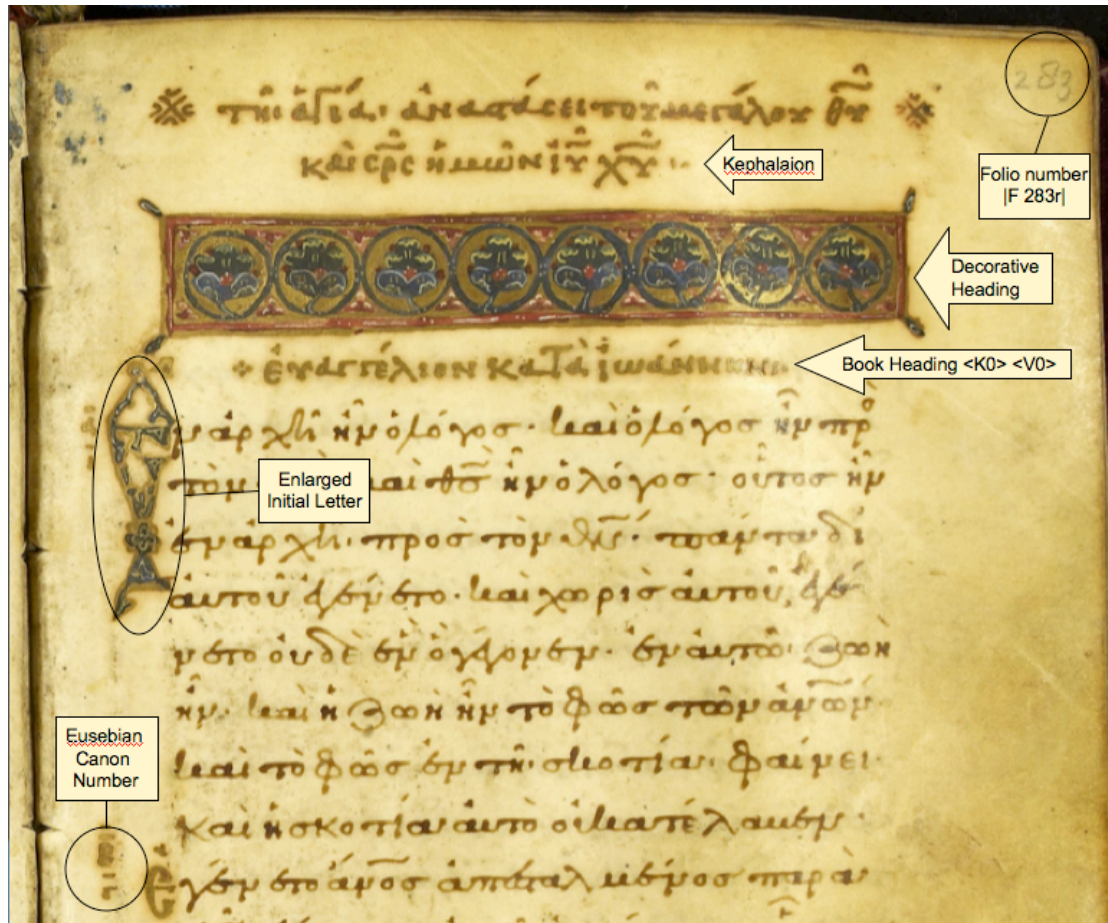 283
τῆ ἁγία ἀναστάσει τοῦ μεγάλου θυ
καὶ σρς ἡμῶν ιυ χυ
Kephalaion
Folio number
|F 283r|
Decorative
Heading
εὐαγγέλιον κατὰ ἰωάννην
Book Heading <K0> <V0>
Enlarged
Initial Letter
Ἐν ἀρχῆ ἦν ὁ λόγος· καὶ ὁ λόγος ἦν πρὸ
τὸν καὶ θς ἦν ὁ λόγος· οὗτος ἦν
ἐν ἀρχῆ· πρὸς τὸν θν· πάντα δι
αὐτοῦ ἐγένετο· καὶ χωρὶς αὐτοῦ, ἐγέ
νετο οὐδὲ ἓν ὃ γέγονεν· ἐν αὐτῶ ζωὴ
ἦν· καὶ ἡ ζωὴ ἦν τὸ φῶς τῶν ἀνων·
καὶ τὸ φῶς ἐν τῆ σκοτία φαίνει·
καὶ ἡ σκοτία αὐτὸ οὐ κατέλαβεν·
Ἐγένετο ἀνος ἀπεσταλμένος παρα
Eusebian
Canon
Number